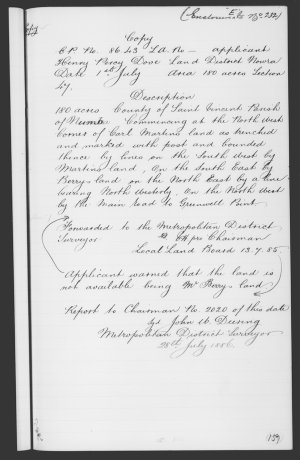 Copy
C.P. No. 86.43 L.A. No — applicant
Henry Percy Dove Land District Nowra
Date 1st July Area 180 acres Section
47.
Description
180 acres County of Saint Vincent Parish
of Commencing at the North West
Corner of Carl Martins land as trenched
and marked with post and bounded
thence by lines on the South West by
Martins land, On the South East by
Berrys land on the North East by a line
bearing North Westerly, On the North West
by the Main road to Greenwell Point
Forwarded to the Metropolitan District
Surveyor pro Chairman
Local Land Board 13.7.85.
Applicant warned that the land is
not available being Mr Berrys land
Report to Chairman No 2020 of this date
sgd John W. Deering
Metropolitan District Surveyor
28th July 1886.
159